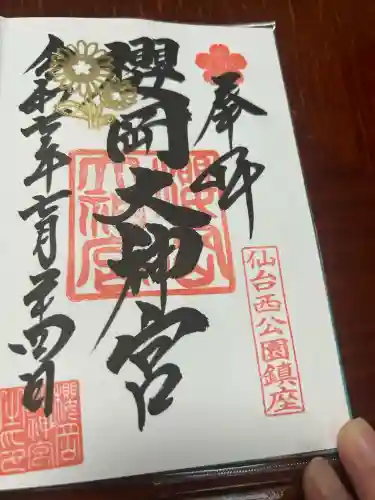 奉拝
仙台西公園鎮座
櫻岡大神宮
櫻岡
大神宮
令和六年七月廿四日